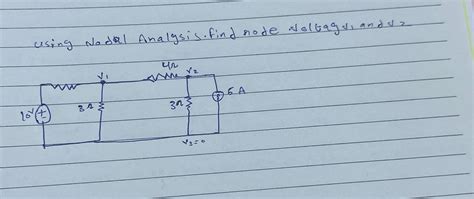 using Nodal Analysis. find node Voltag v1 and v2
4Ω
v1
v2
10V
8Ω
3Ω
5 A
v3=0